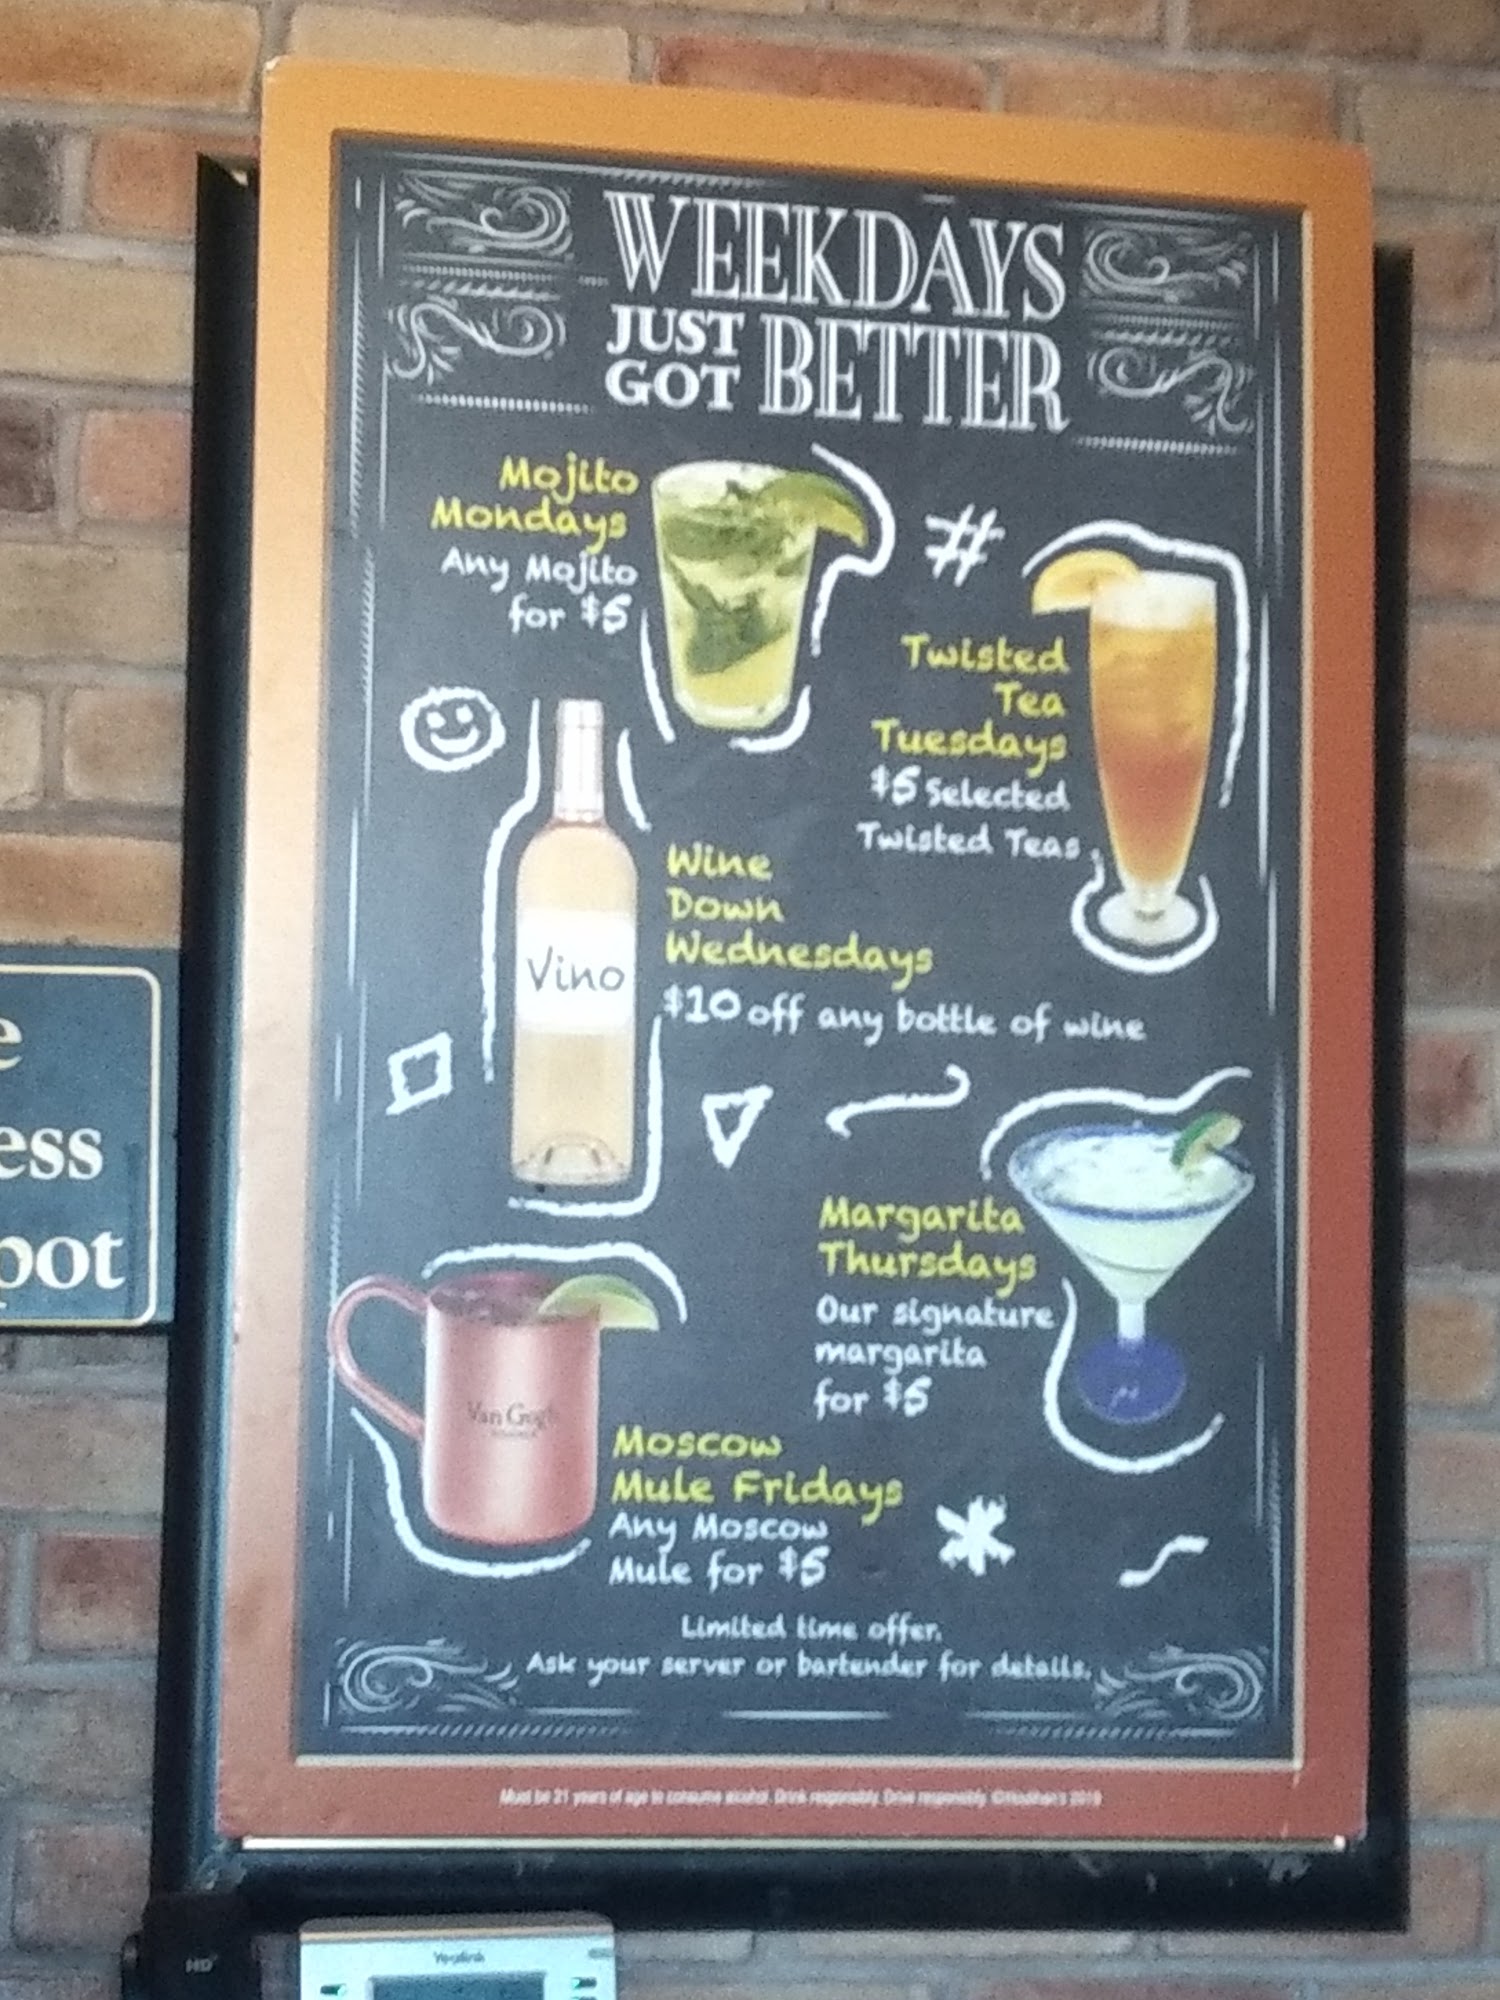 WEEKDAYS
JUST
GOT BETTER
Mojito
Mondays
Any Mojito
for $5
#
Twisted
Tea
Tuesdays
$5 Selected
Twisted Teas
Wine
Down
Wednesdays
$10 off any bottle of wine
Vino
Margarita
Thursdays
Our signature
margarita
for $5
Van Gogh
Moscow
Mule Fridays
Any Moscow
Mule for $5
Limited time offer.
Ask your server or bartender for details.
Must be 21 years of age to consume alcohol. Drink responsibly. Drive responsibly. ©Houlihan's 2019
e
ess
pot
HD
Yealink